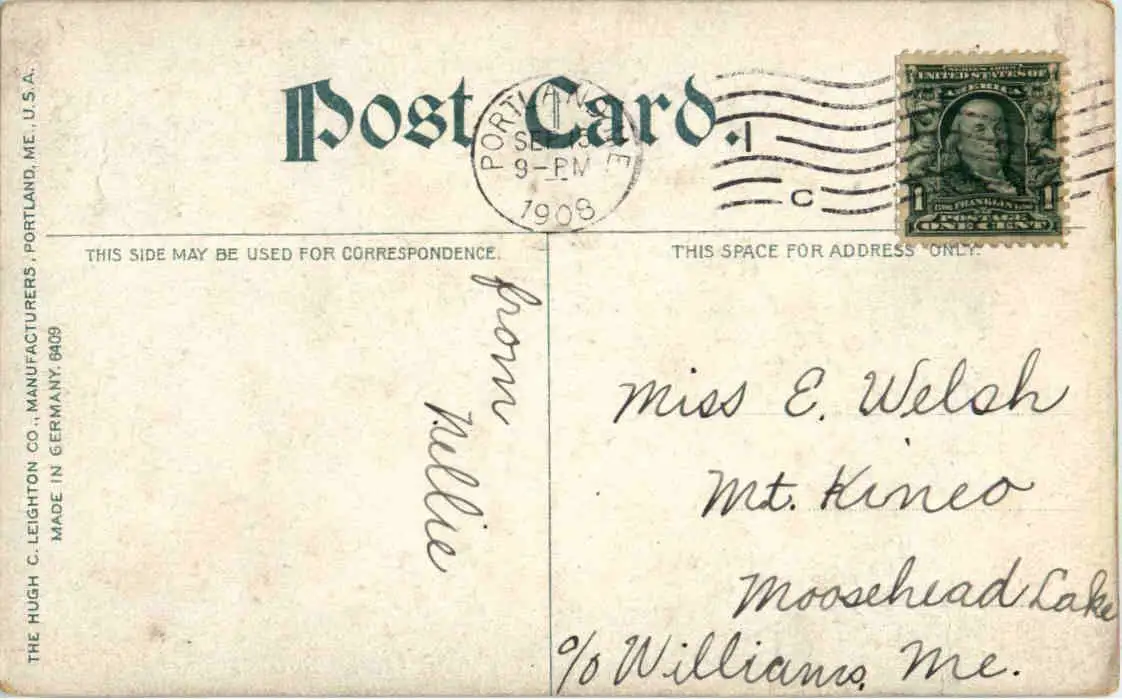 Post Card.
PORTLAND, ME
SEP 13
9-PM
1908
1
C
SERIES 1902
UNITED STATES OF
AMERICA
1 1
FRANKLIN
POSTAGE
ONE CENT
THIS SIDE MAY BE USED FOR CORRESPONDENCE.
THIS SPACE FOR ADDRESS ONLY.
from
Nellie
Miss E. Welsh
Mt. Kineo
Moosehead Lake
c/o Williams, Me.
THE HUGH C. LEIGHTON CO., MANUFACTURERS, PORTLAND, ME., U.S.A.
MADE IN GERMANY. 6409